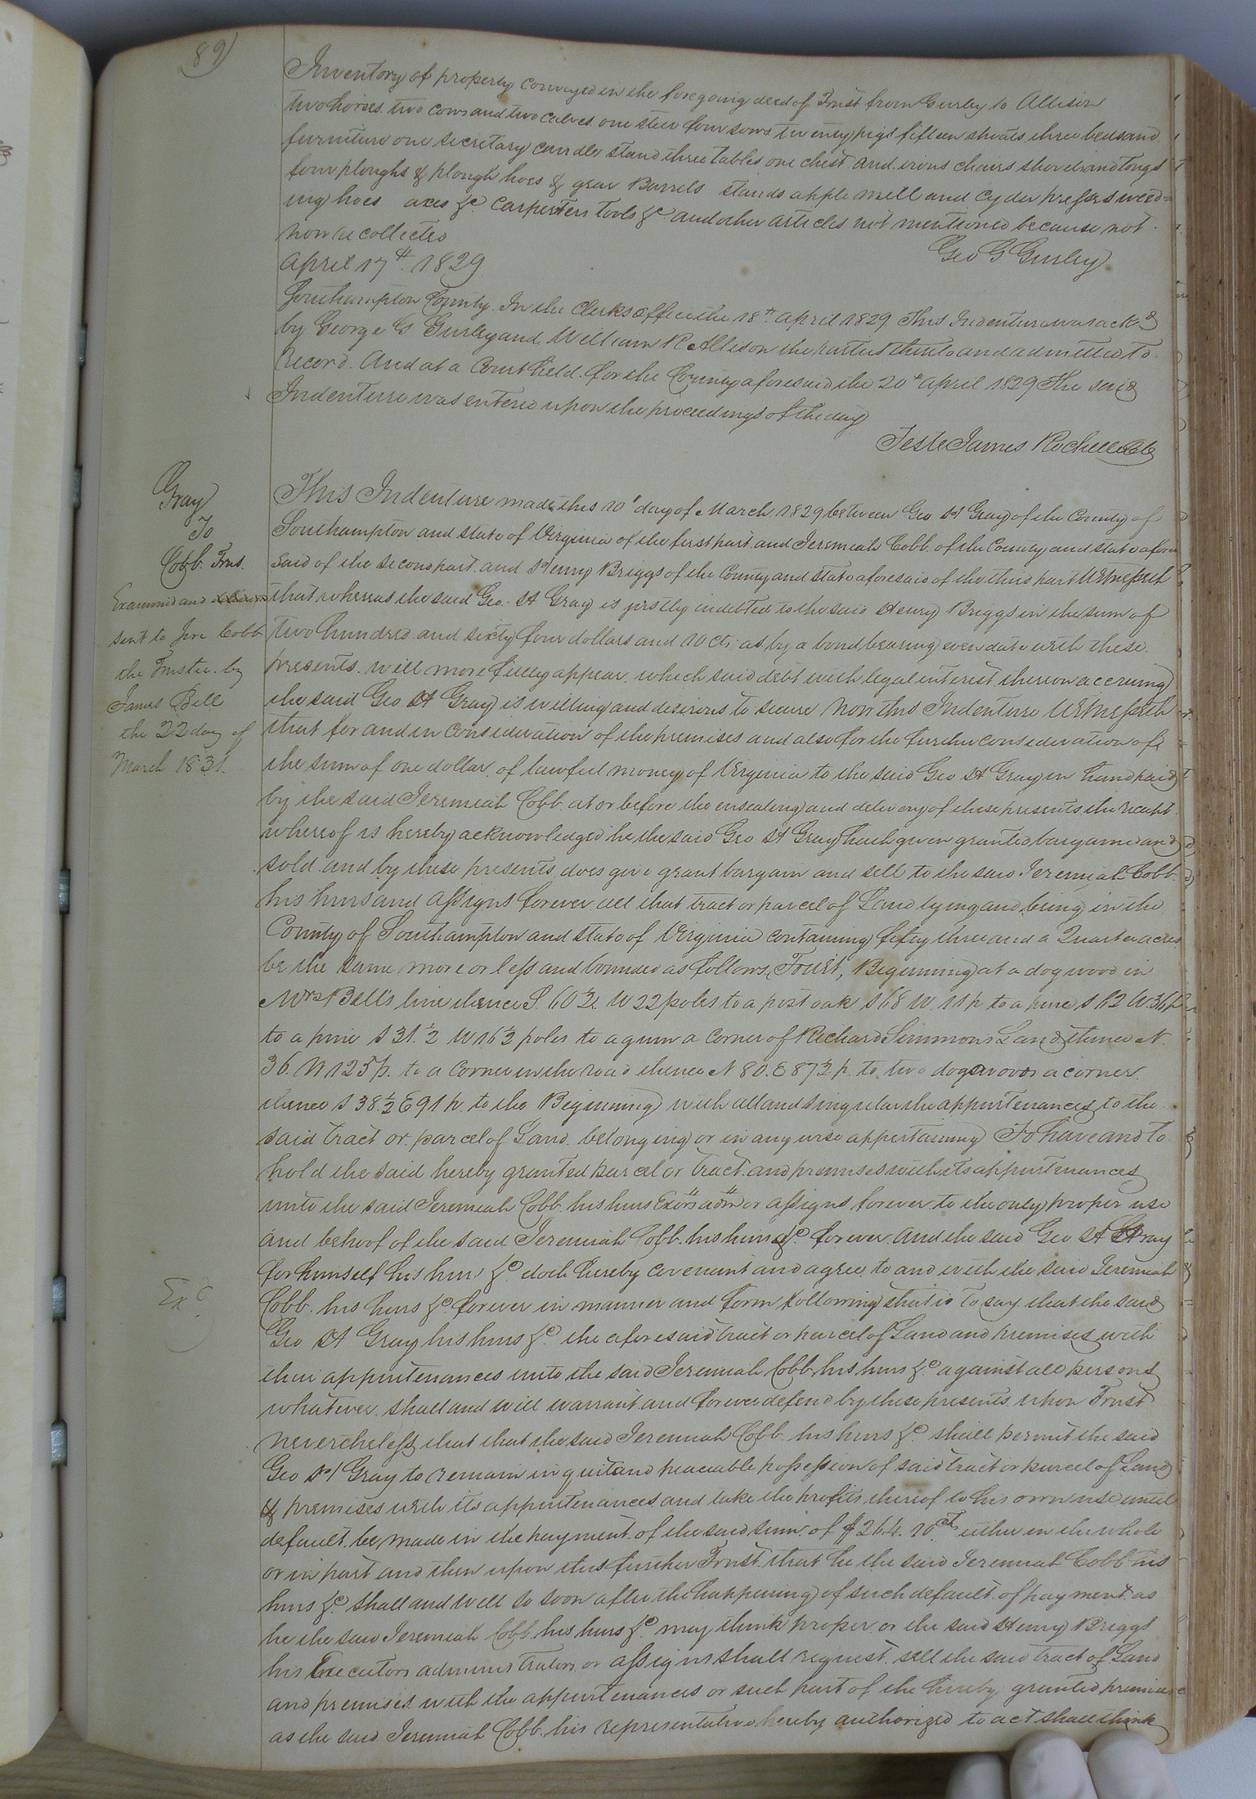 89
Inventory of property conveyed in the foregoing deed of Trust from Gurley to Allison
two horses two cows and two calves one steer four sows twenty pigs fifteen shoats three beds and
furniture one secretary candle stand three tables one chest And irons chairs shovel and tongs
four ploughs & plough hoes & gear Barrels stands apple mill and Cyder press weed-
ing hoes axes &c Carpenters tools &c and other articles not mentioned because not
now recollected Geo G Gurley
April 17th 1829
Southampton County. In the Clerks office the 18th April 1829 This Indenture was ackd
by George G Gurley and William R Allison the parties thereto and admitted to
Record. And at a Court held for the County aforesaid the 20th April 1829 The said
Indenture was entered upon the proceedings of the day
Teste James Rochelle Clk
Gray
To
Cobb Trus.
Examined and
sent to Jere Cobb
the Trustee by
James Bell
the 22 day of
March 1831.
This Indenture made this 10th day of March 1829 between Geo H Gray of the County of
Southampton and state of Virginia of the first part and Jeremiah Cobb of the County and state afore
said of the second part and Henry Briggs of the County and state aforesaid of the third part Witnesseth
that whereas the said Geo. H Gray is justly indebted to the said Henry Briggs in the sum of
two hundred and sixty four dollars and 10 cts. as by a bond bearing even date with these
presents will more fully appear which said debt with legal interest thereon accruing
the said Geo H Gray is willing and desirous to secure Now this Indenture Witnesseth
that for and in consideration of the premises and also for the further consideration of
the sum of one dollar of lawful money of Virginia to the said Geo H Gray in hand paid
by the said Jeremiah Cobb at or before the ensealing and delivery of these presents the receipt
whereof is hereby acknowledged he the said Geo H Gray hath given granted bargained and
sold and by these presents does give grant bargain and sell to the said Jeremiah Cobb
his heirs and assigns forever all that tract or parcel of Land lying and being in the
County of Southampton and state of Virginia containing fifty three and a Quarter acres
be the same more or less and bounded as follows, Beginning at a dogwood in
Mrs Bell's line thence S. 60½ W 22 poles to a post oak S 68 W 11 p to a pine S 12 W 36 p
to a pine S 31.½ W 16½ poles to a gum a corner of Richard Simmons Land thence N.
36. W 125 p. to a corner in the road thence N 80. E 87½ p. to two dogwoods a corner
thence S 38½ E 91 p to the Beginning with all and singular the appurtenances to the
said tract or parcel of Land belonging or in any wise appertaining To have and to
hold the said hereby granted parcel or tract and premises with its appurtenances
unto the said Jeremiah Cobb his heirs Exors admrs or assigns forever to the only proper use
and behoof of the said Jeremiah Cobb his heirs &c forever And the said Geo H Gray
for himself his heirs &c doth hereby covenant and agree to and with the said Jeremiah
Cobb his heirs &c forever in manner and form following that is to say that the said
Geo H Gray his heirs &c the aforesaid tract or parcel of Land and premises with
their appurtenances unto the said Jeremiah Cobb his heirs &c against all persons
whatever shall and will warrant and forever defend by these presents upon Trust
nevertheless that that the said Jeremiah Cobb his heirs &c shall permit the said
Geo H Gray to remain in quiet and peaceable possession of said tract or parcel of Land
& premises with its appurtenances and take the profits thereof to his own use until
default be made in the payment of the said sum of $264.10cts either in the whole
or in part and then upon this further Trust that he the said Jeremiah Cobb his
heirs &c shall and will so soon after the happening of such default of payment as
he the said Jeremiah Cobb his heirs &c may think proper or the said Henry Briggs
his Executors administrators or assigns shall request sell the said tract of Land
and premises with the appurtenances or such part of the hereby granted premises
as the said Jeremiah Cobb his representative hereby authorized to act shall think
Exd